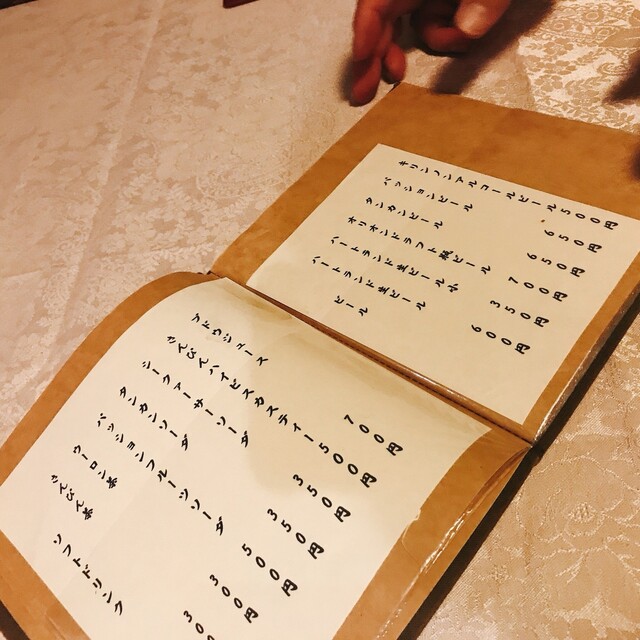 ビール
ハートランド生ビール 600円
ハートランド生ビール 小 350円
オリオンドラフト瓶ビール 700円
タンカンビール 650円
パッションビール 650円
キリンノンアルコールビール 500円
ソフトドリンク
さんぴん茶 30
ウーロン茶 300円
パッションフルーツソーダ 500円
タンカンソーダ 350円
シークァーサーソーダ 350円
さんぴんハイビスカスティー 500円
ブドウジュース 700円